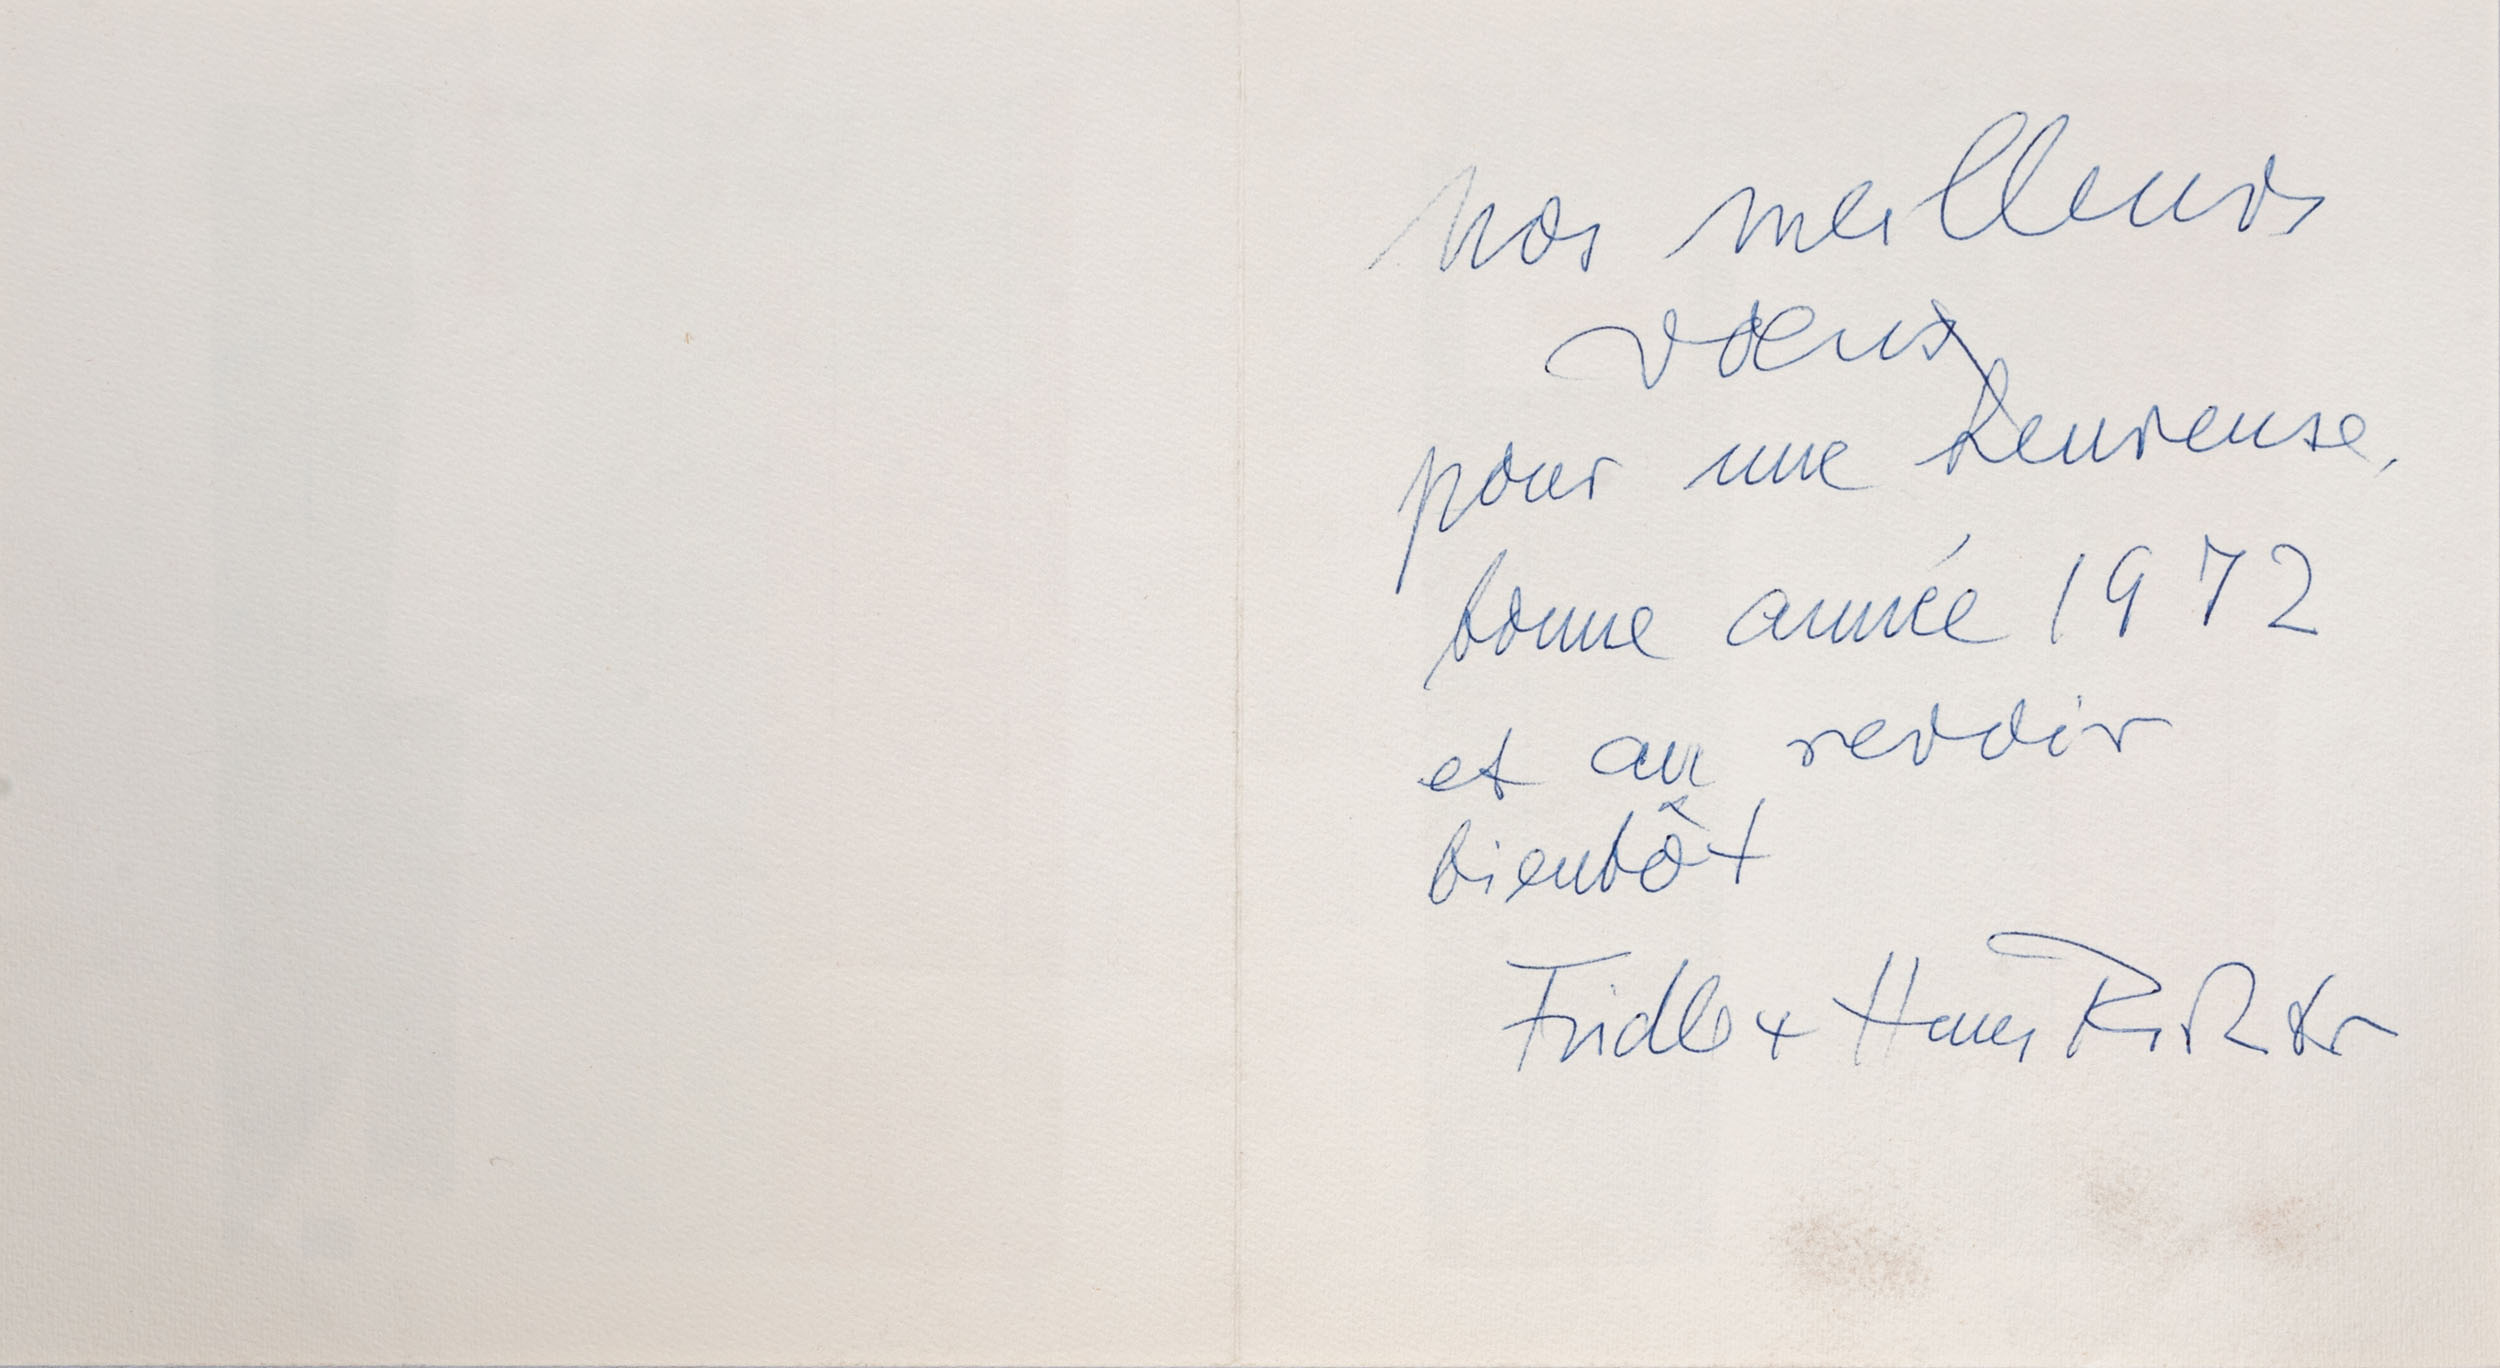 nos meilleurs
vœux
pour une heureuse,
bonne année 1972
et au revoir
bientôt
Fridl + Hans Richter